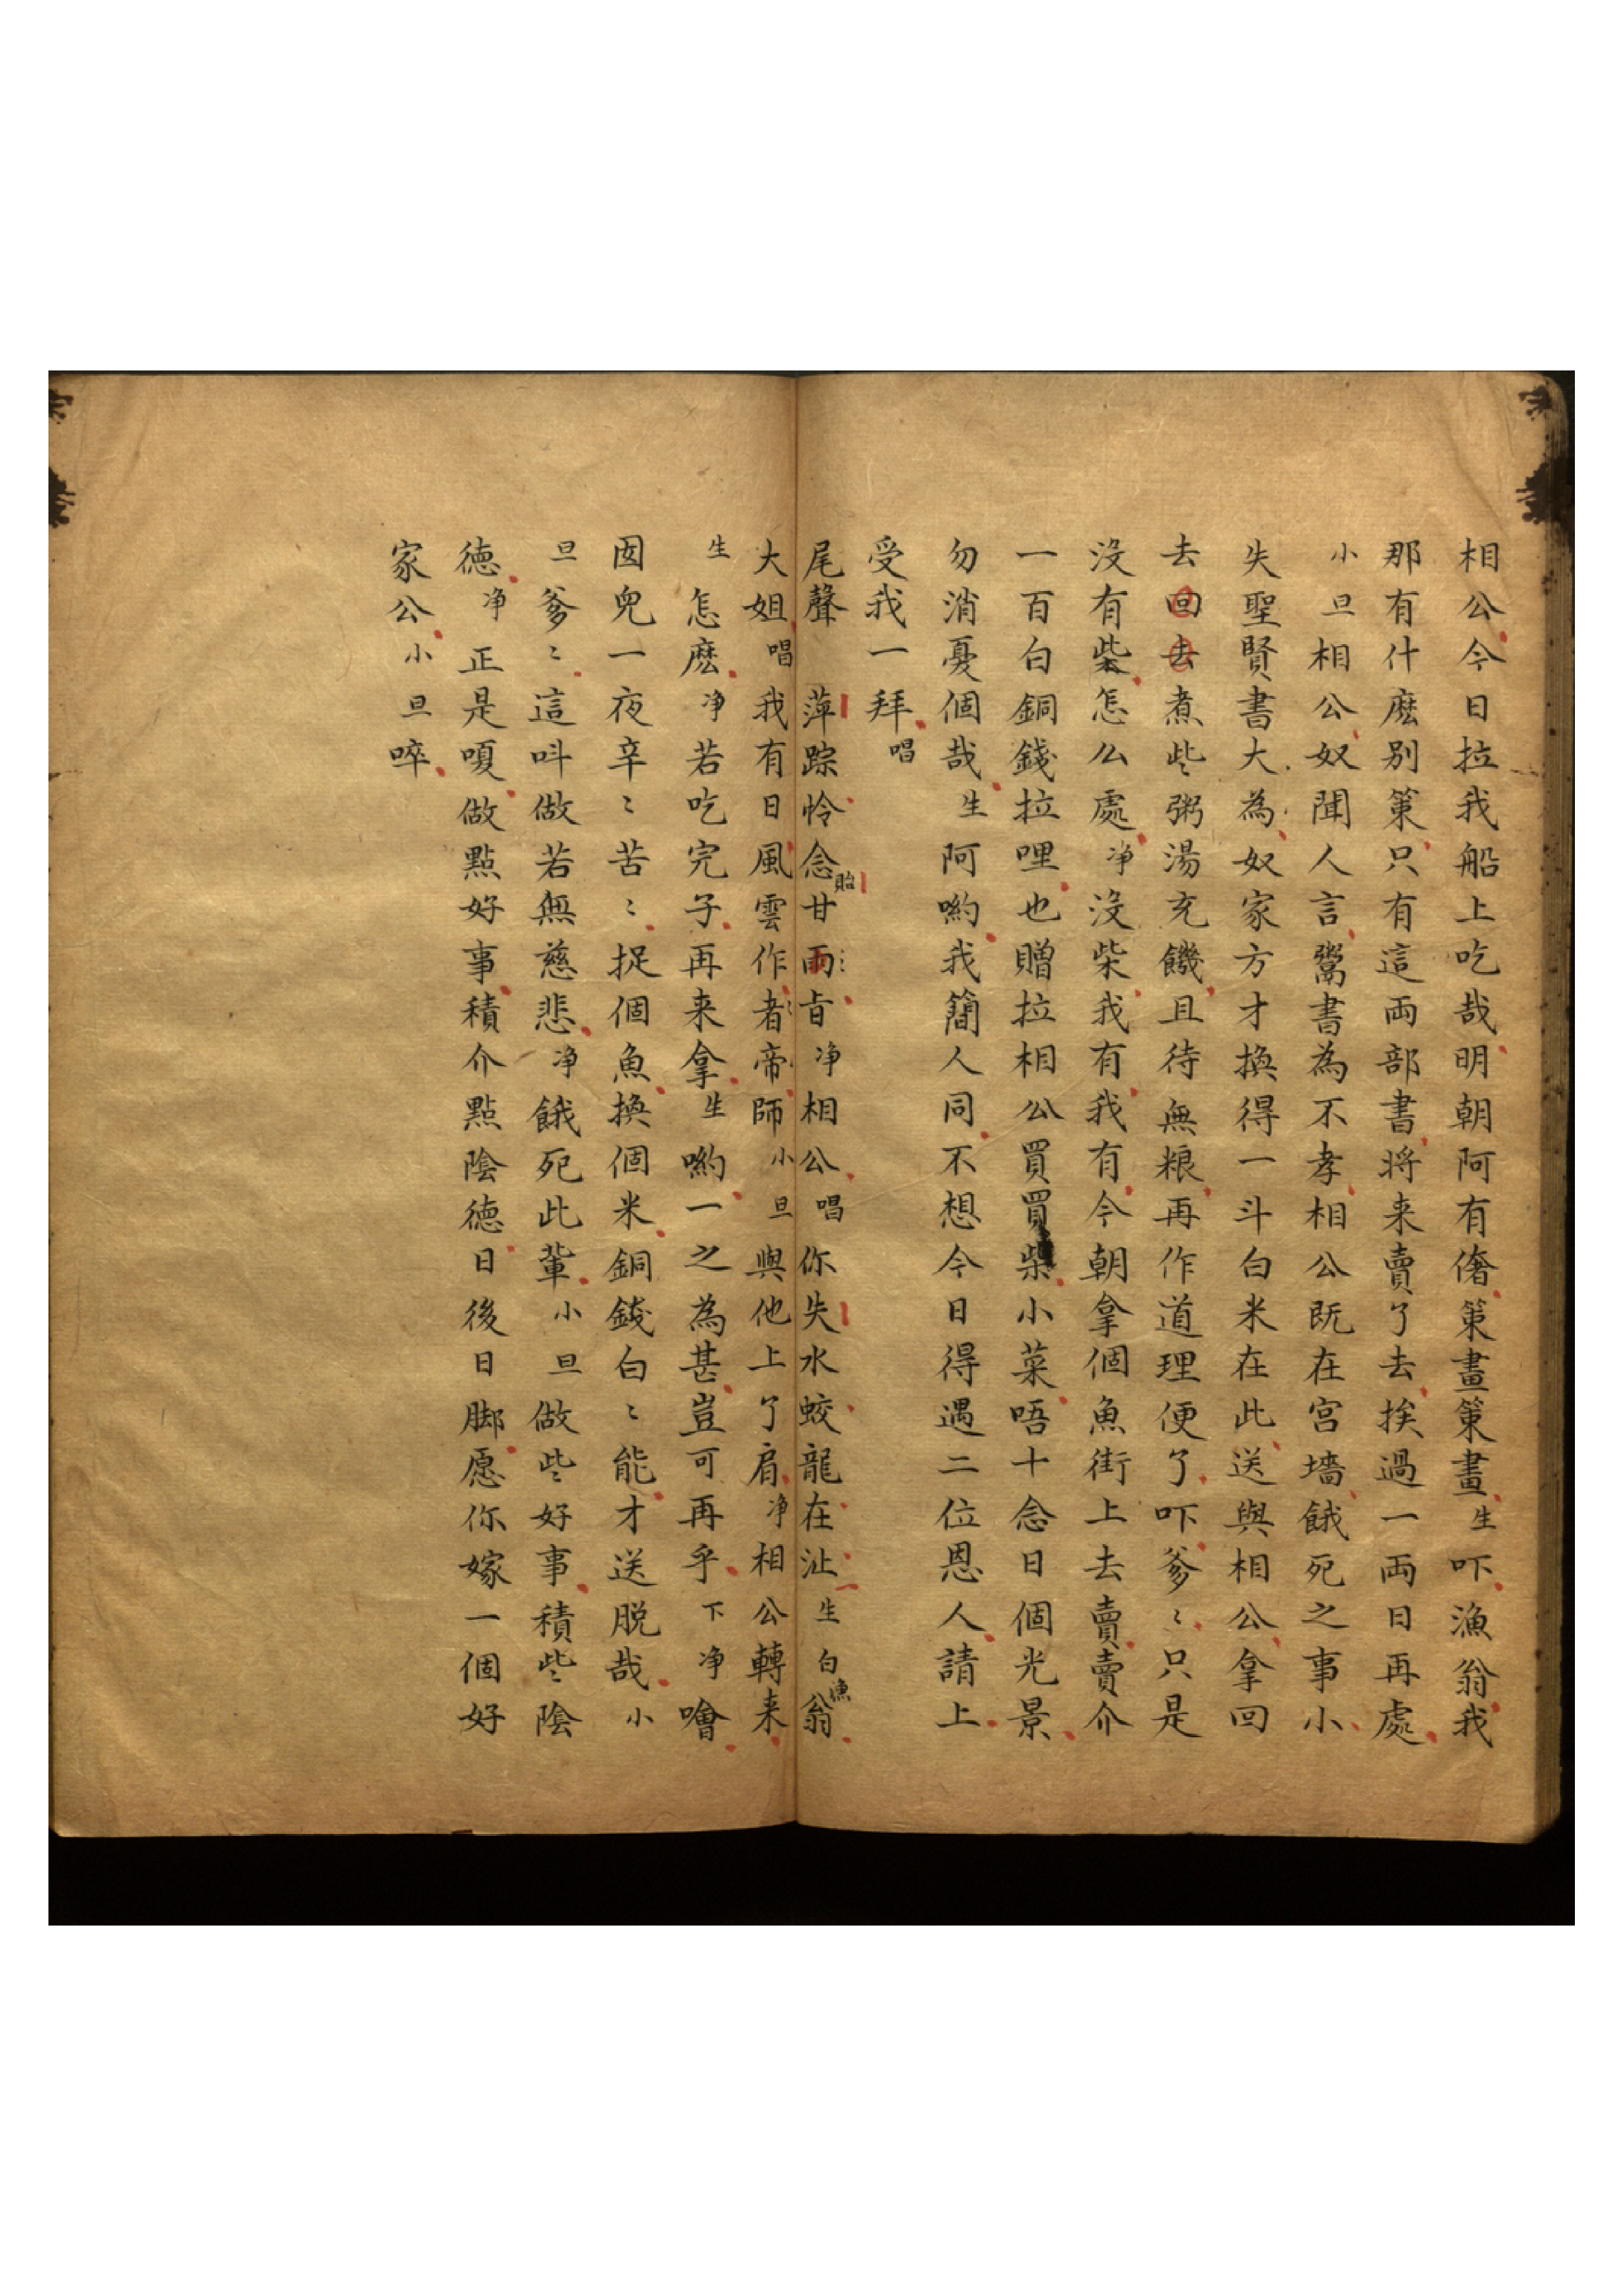 相公今日拉我船上吃哉明朝阿有偺策畫策畫生吓漁翁我
那有什麽別策只有這両部書将来賣了去挨過一両日再處
小旦相公奴聞人言鬻書為不孝相公既在宫墻餓死之事小
失聖賢書大為奴家方才換得一斗白米在此送與相公拿回
去回去煮些粥湯充饑且待無粮再作道理便了吓爹〻只是
沒有柴怎么處净沒柴我有我有今朝拿個魚街上去賣賣介
一百白銅錢拉哩也贈拉相公買買柴小菜唔十念日個光景
勿消憂個哉生阿喲我簡人同不想今日得遇二位恩人請上
受我一拜唱
尾聲 萍踪怜念貽甘雨旨净相公唱你失水蛟龍在沚生白漁翁
大姐唱我有日風雲作者帝師小旦與他上了肩净相公轉来
生怎麽净若吃完子再来拿生喲一之為甚豈可再乎下净噲
囡兒一夜辛〻苦〻捉個魚換個米銅錢白〻能才送脱哉小
旦爹〻這呌做若無慈悲净餓死此輩小旦做些好事積些陰
德净正是嗄做點好事積介點陰德日後日脚愿你嫁一個好
家公小旦啐